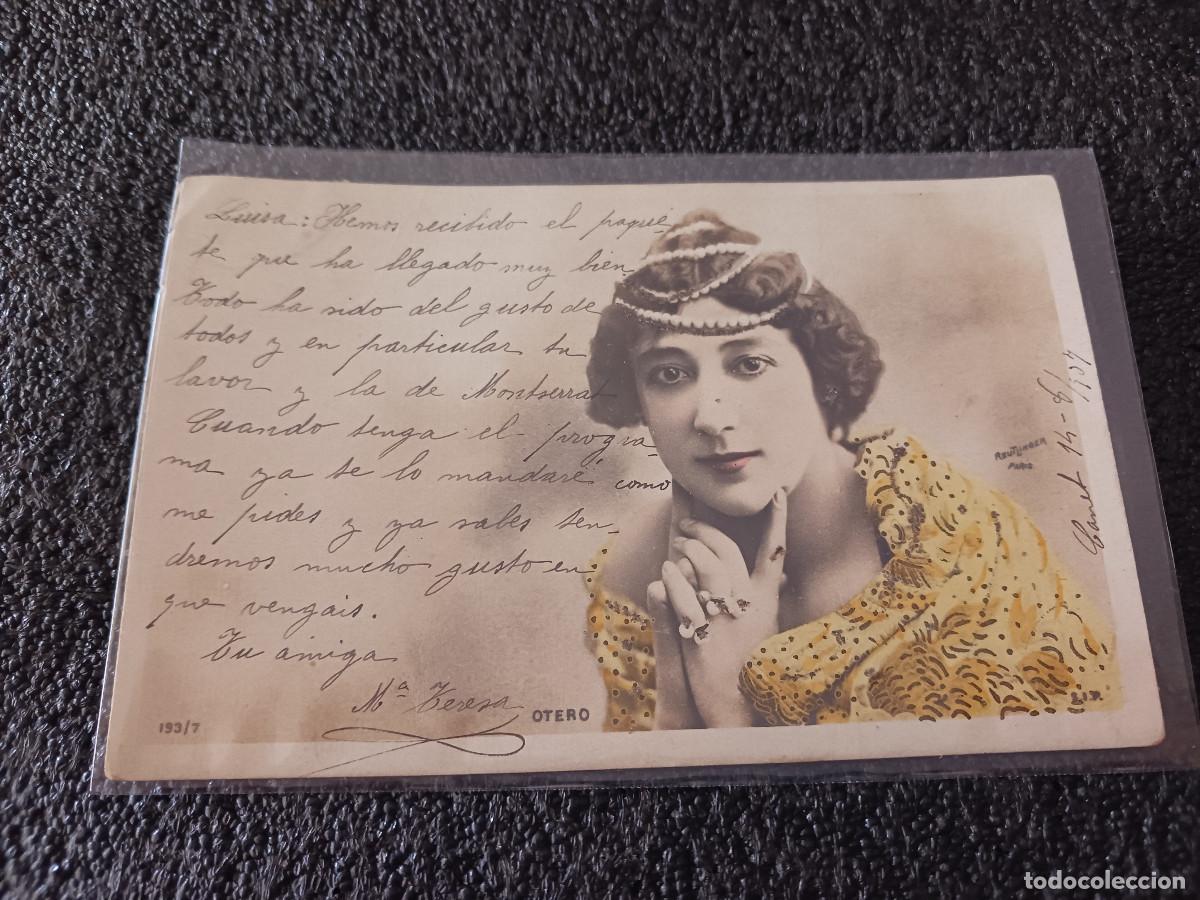 Luisa: Hemos recibido el paque-
te que ha llegado muy bien
Todo ha sido del gusto de
todos y en particular tu
lavor y la de Montserrat
Cuando tenga el progra-
ma ya te lo mandaré como
me pides y ya sabes ten-
dremos mucho gusto en
que vengais.
Tu amiga
Mª Teresa
193/7
OTERO
REUTLINGER
PARIS
Canet 14-8/
S.I.P.
todocoleccion